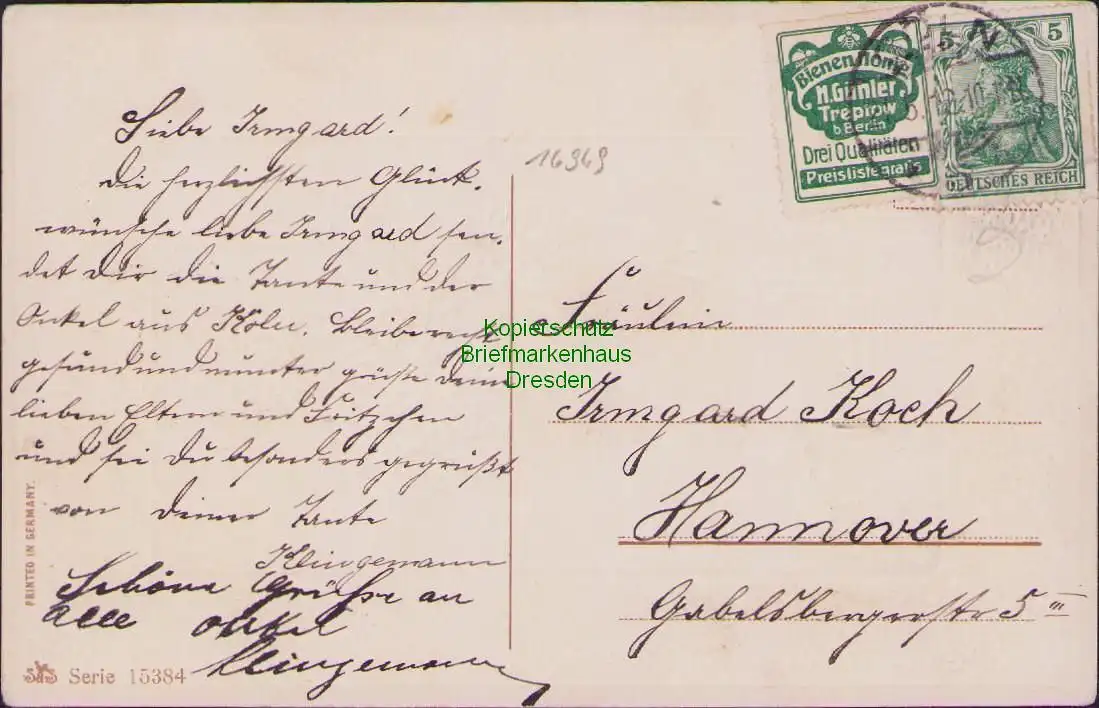 Liebe Irmgard!
Die herzlichsten Glück-
wünsche liebe Irmgard sen-
det Dir die Tante und der
Onkel aus Köln. Bleibe recht
gesund und munter grüße deine
lieben Eltern und Fritzchen
und sei Du besonders gegrüßt
von deiner Tante
Klingemann
Schöne Grüße an
alle onkel
Klingemann
PRINTED IN GERMANY.
Serie 15384
16969
Bienenhonig
H. Gühler
Treptow
b. Berlin
Drei Qualitäten
Preisliste gratis
5 5
DEUTSCHES REICH
Fräulein
Irmgard Koch
Hannover
Gabelsbergerstr 5 III
Kopierschutz
Briefmarkenhaus
Dresden